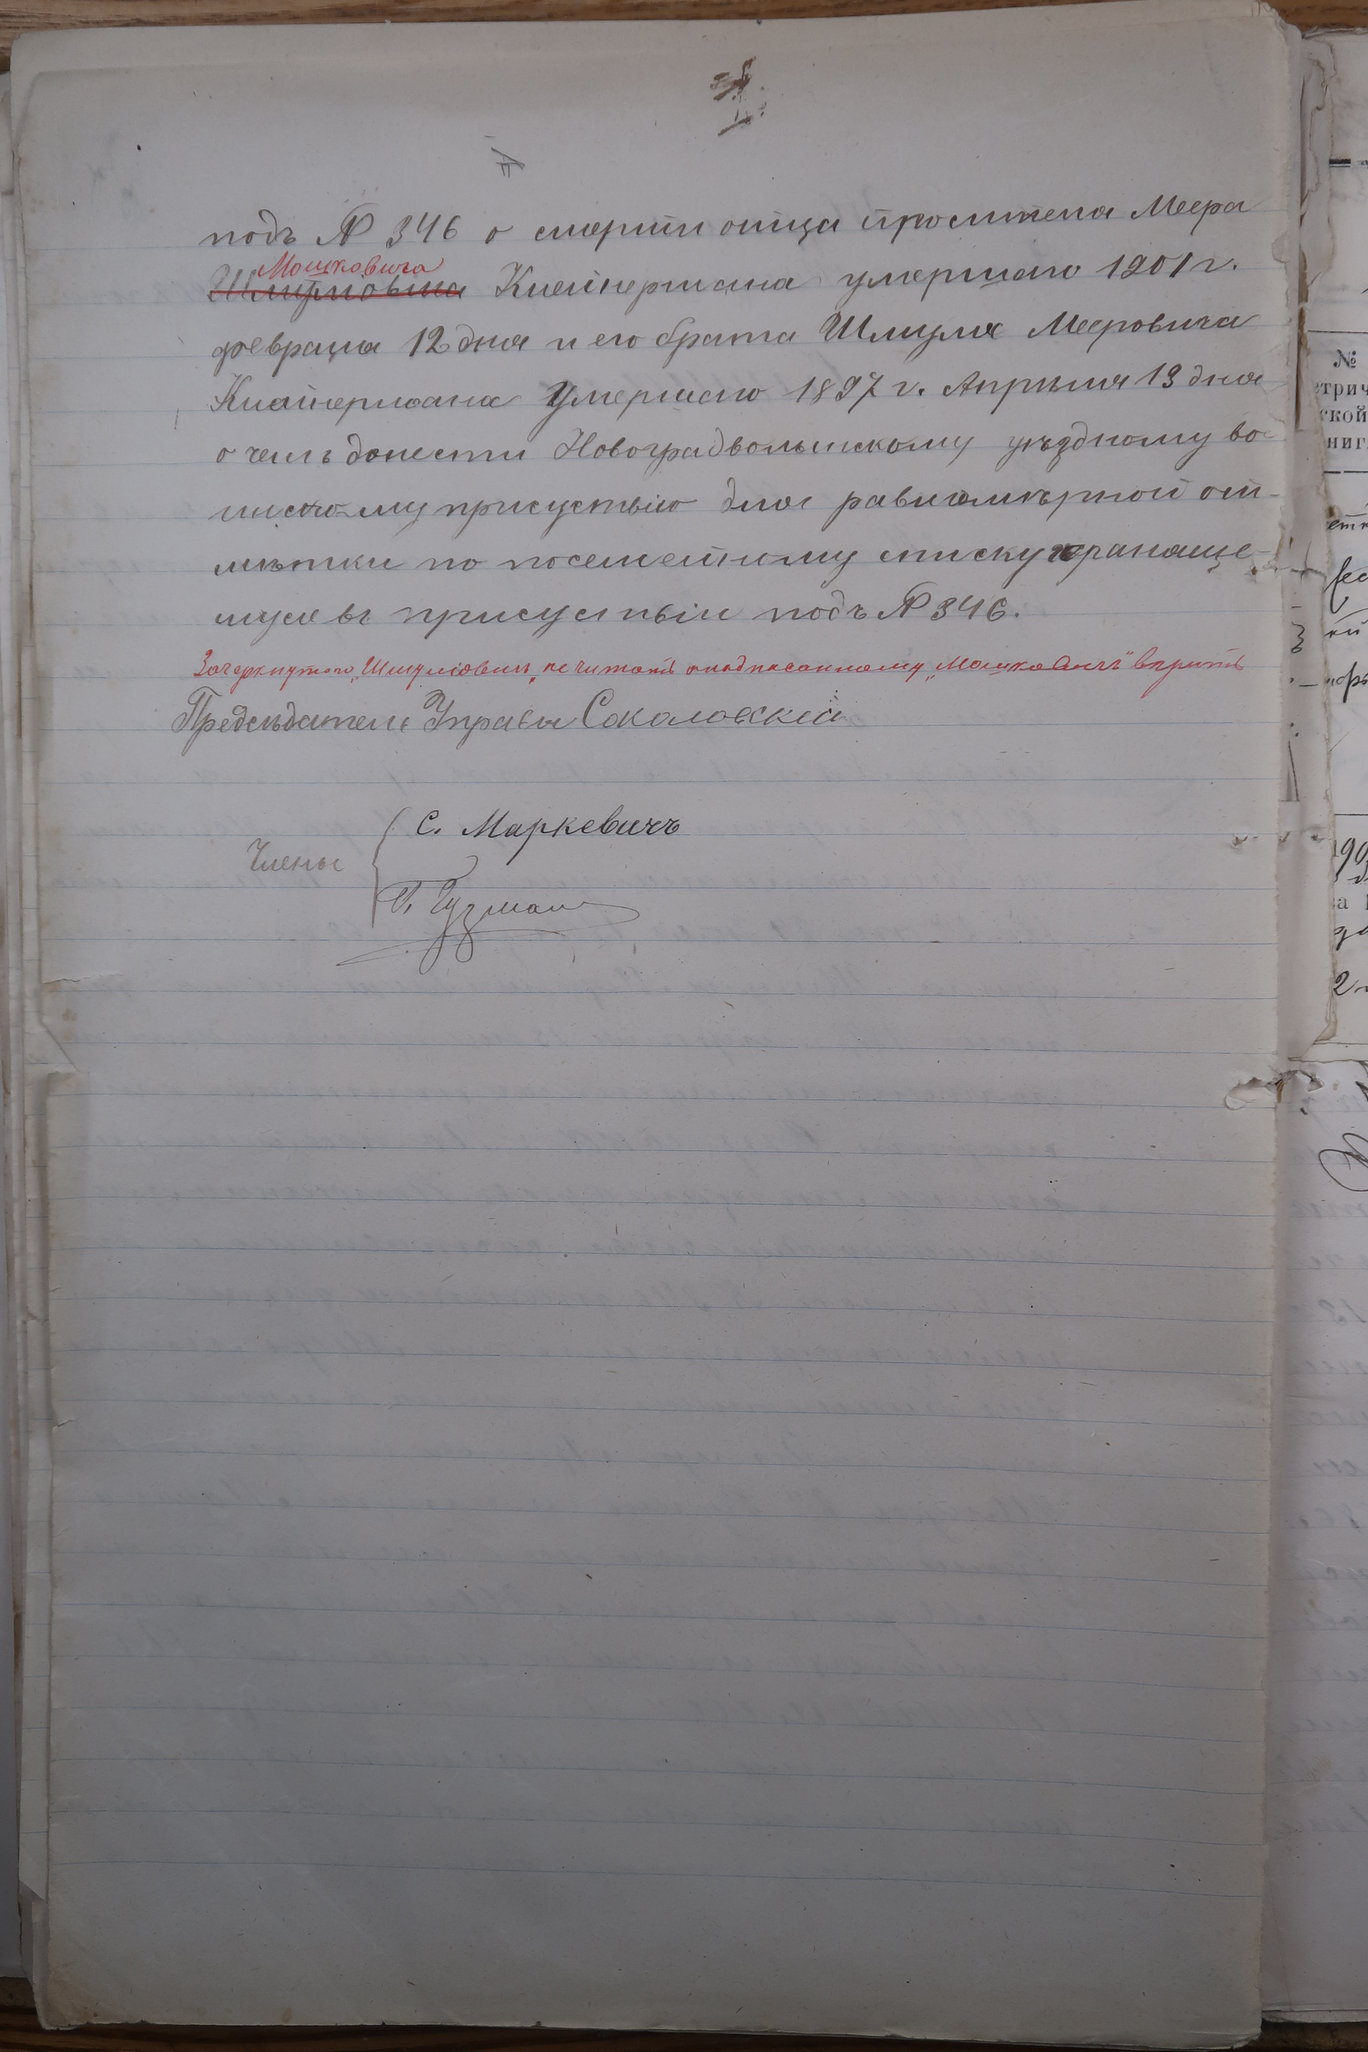 подъ № 346 о смерти отца просителя Меера
Мошковича
Шмулёвича Клейнермана умершаго 1901 г.
февраля 12 дня и его брата Шмуля Мееровича
Клайнермана умершаго 1897 г. Апрѣля 13 дня
о чемъ донести Новоградволынскому уѣздному во-
инскому присуствію для равномѣрной от-
мѣтки по посемейному списку храняще-
муся въ присуствіи подъ № 346.
Зачеркнутого „Шмулювичъ„ не читать а надписанному „Мошковичъ" вѣрить
Предсѣдатель Управы Соколовскій
Члены
С. Маркевичъ
Г. Гузман
№
трич
ской
ниг